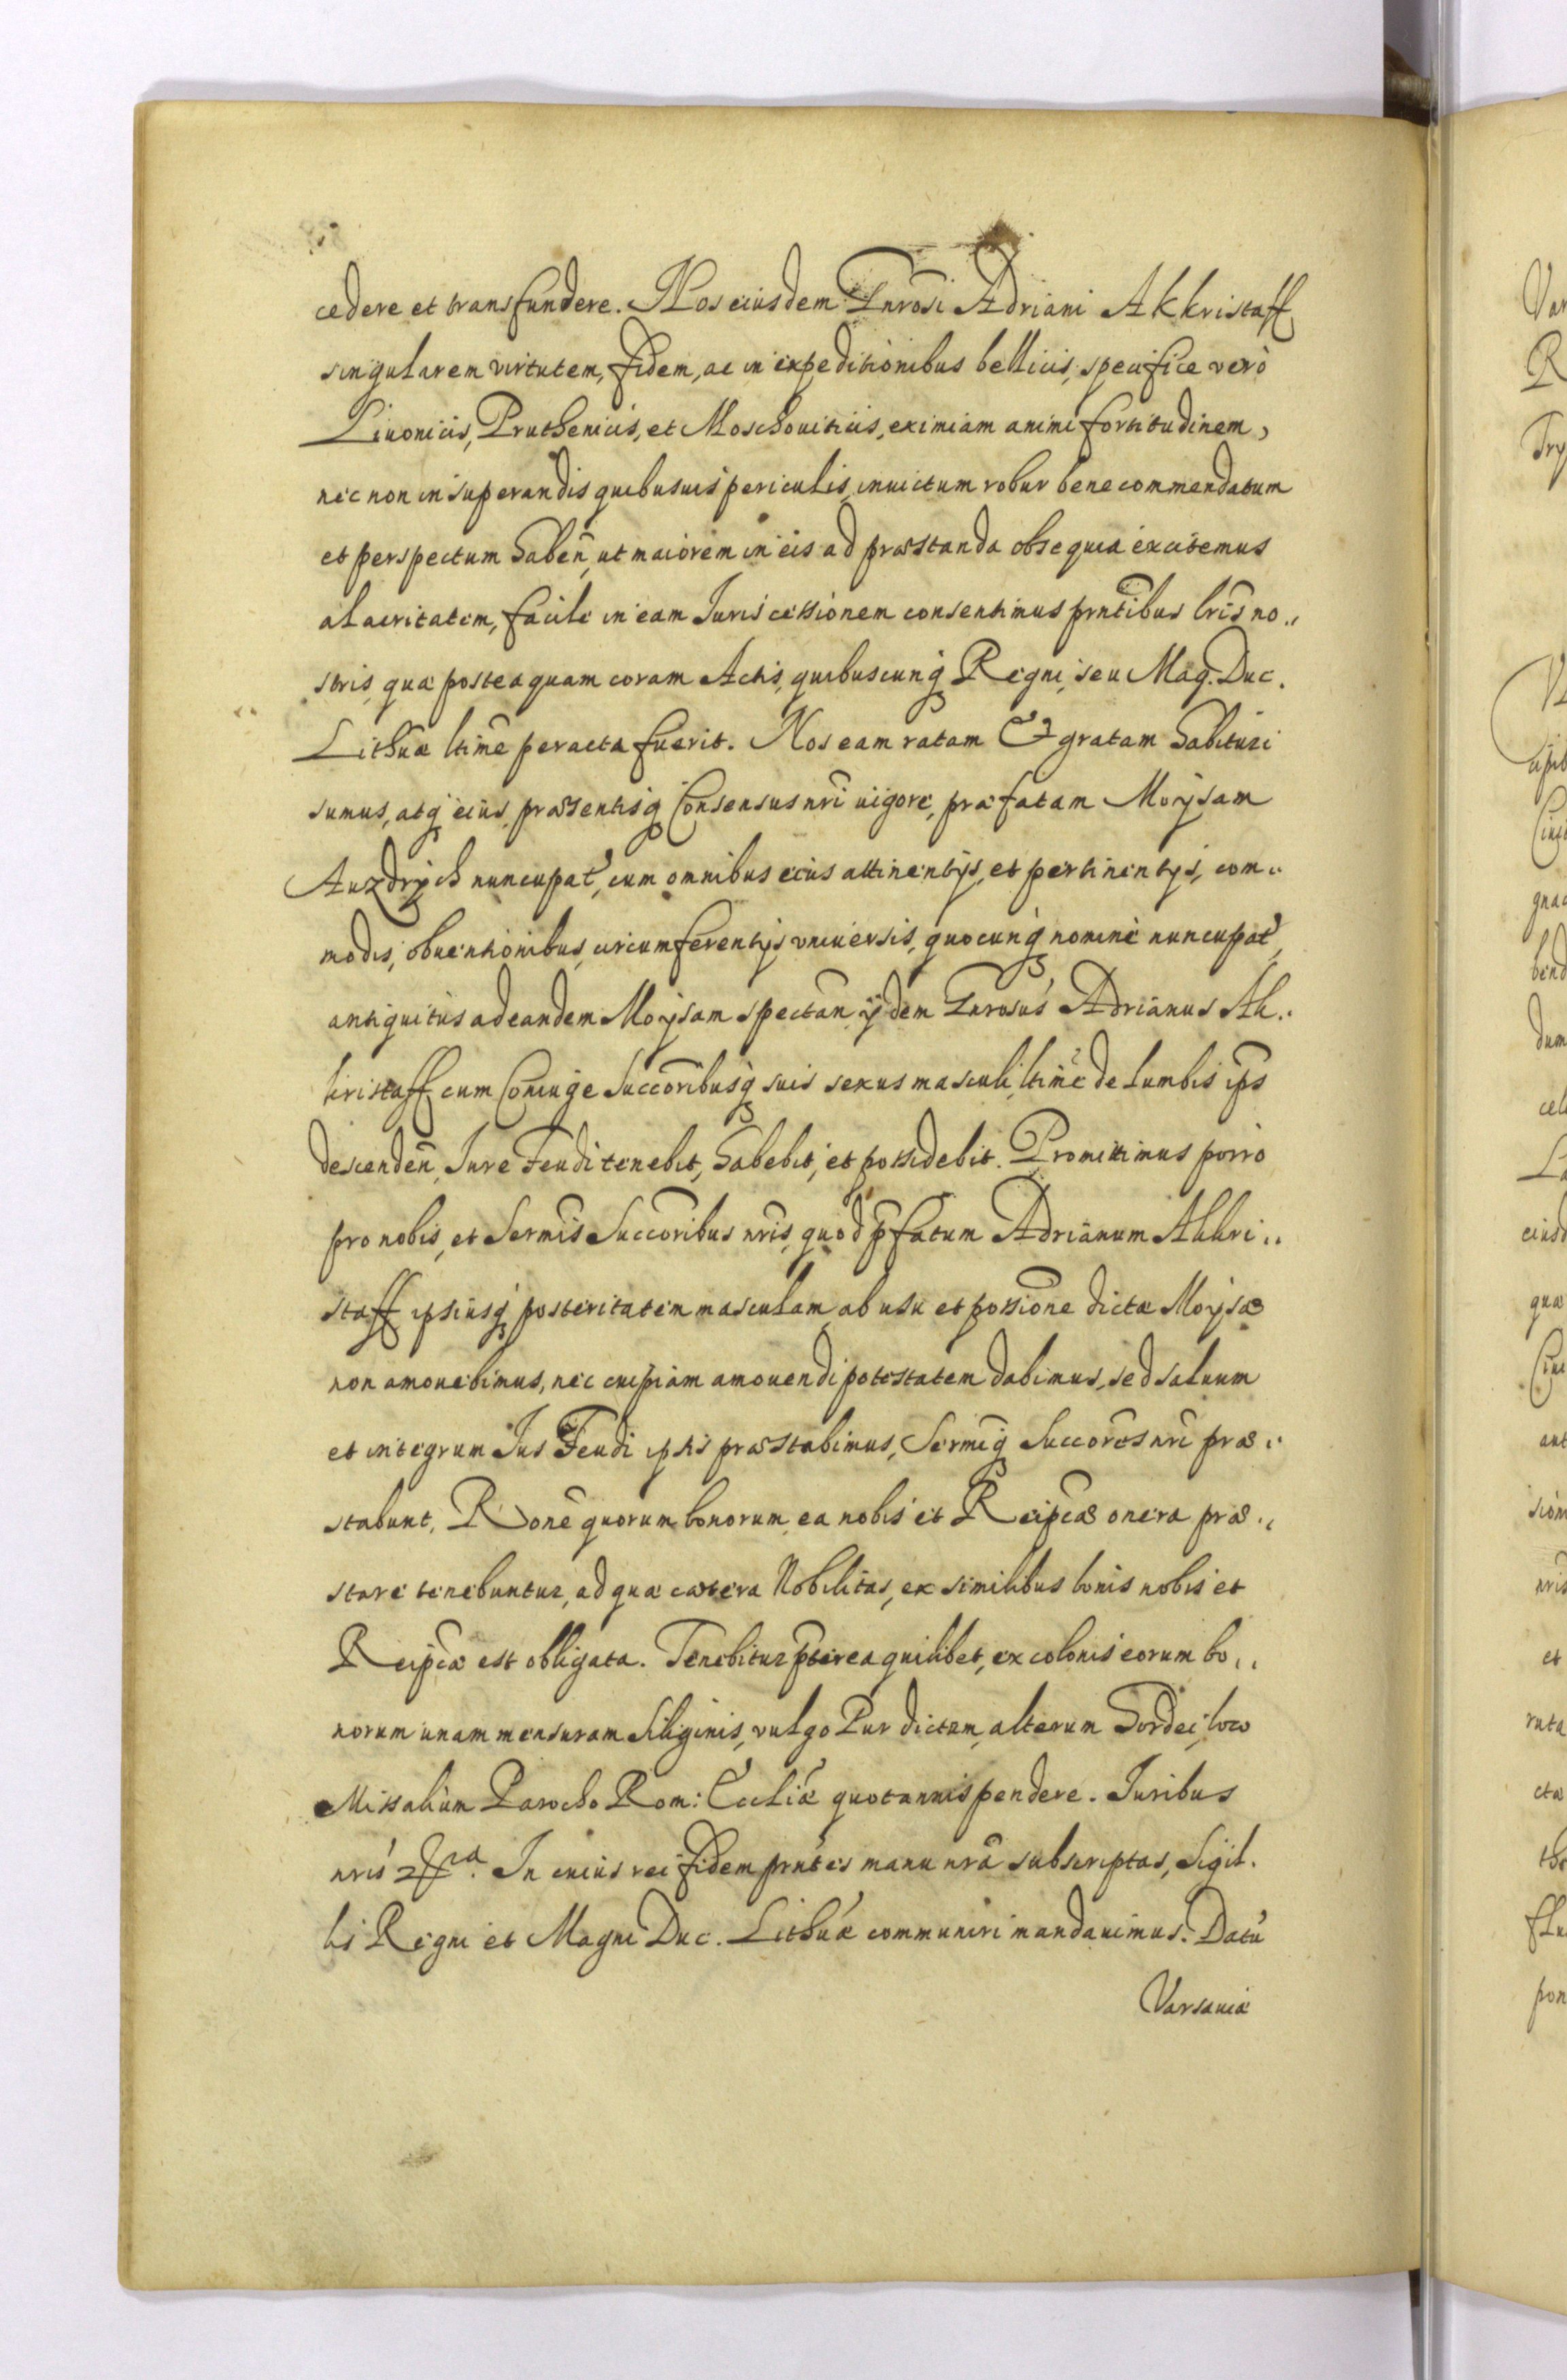 cedere et transfundere. Nos eiusdem Gnrosi Adriani Akkristaff
singularem virtutem, fidem, ac in expeditionibus bellicis, specifice verò
Livonicis, Pruthenicis, et Moschouiticis, eximiam animi fortitudinem,
nec non in superandis quibusuis periculis, inuictum robur bene commendatum
et perspectum haben̄, ut maiorem in eis ad præstanda obsequia excitemus
alacritatem, facile in eam Juris cessionem consentimus prntibus lris no„
stris, quæ posteaquam coram Actis, quibuscunq́ Regni, seu Mag. Duc.
Lithuæ ltime peracta fuerit. Nos eam ratam & gratam habituri
sumus, atq́ eius, præsentisq́ Consensus nri uigore, præfatam Moysam
Auzdrych nuncupat̃, cum omnibus eius attinentijs, et pertinentijs, com„
modis, obuentionibus, circumferentijs vniuersis, quocunq́ nomine nuncupat̃,
antiquitùs ad eandem Moysam spectan̄ ijdem Gnrosus Adrianus Ak„
kristaff cum Coniuge Succoribusq́ suis sexus masculi, ltime de lumbis ips
descenden̄, Jure Feudi tenebit, habebit, et possidebit. Promittimus porrò
pro nobis, et Sermis Succoribus nris, quod p̄fatum Adrianum Akkri„
staff ipsiusq́ posteritatem masculam, ab usu et possione dictæ Moysæ
non amouebimus, nec cuipiam amouendi potestatem dabimus, sed saluum
et integrum Jus Feudi ipsis præstabimus, Sermiq́ Succores nri præ„
stabunt, Rone quorum bonorum, ea nobis et Reipcæ onera præ„
stare tenebuntur, ad quæ cætera Nobilitas, ex similibus bonis nobis et
Reipcæ est obligata. Tenebitur pterea quilibet, ex colonis eorum bo„
norum unam mensuram Siliginis, vulgo Pur dictam, alteram hordei, loco
Missalium Parocho Rom: Eccliæ quotannis pendere. Juribus
nris In cuius rei fidem prntes manu nrâ subscriptas, Sigil.
lis Regni et Magni Duc. Lithuæ communiri mandauimus. Datũ
Varsauiæ